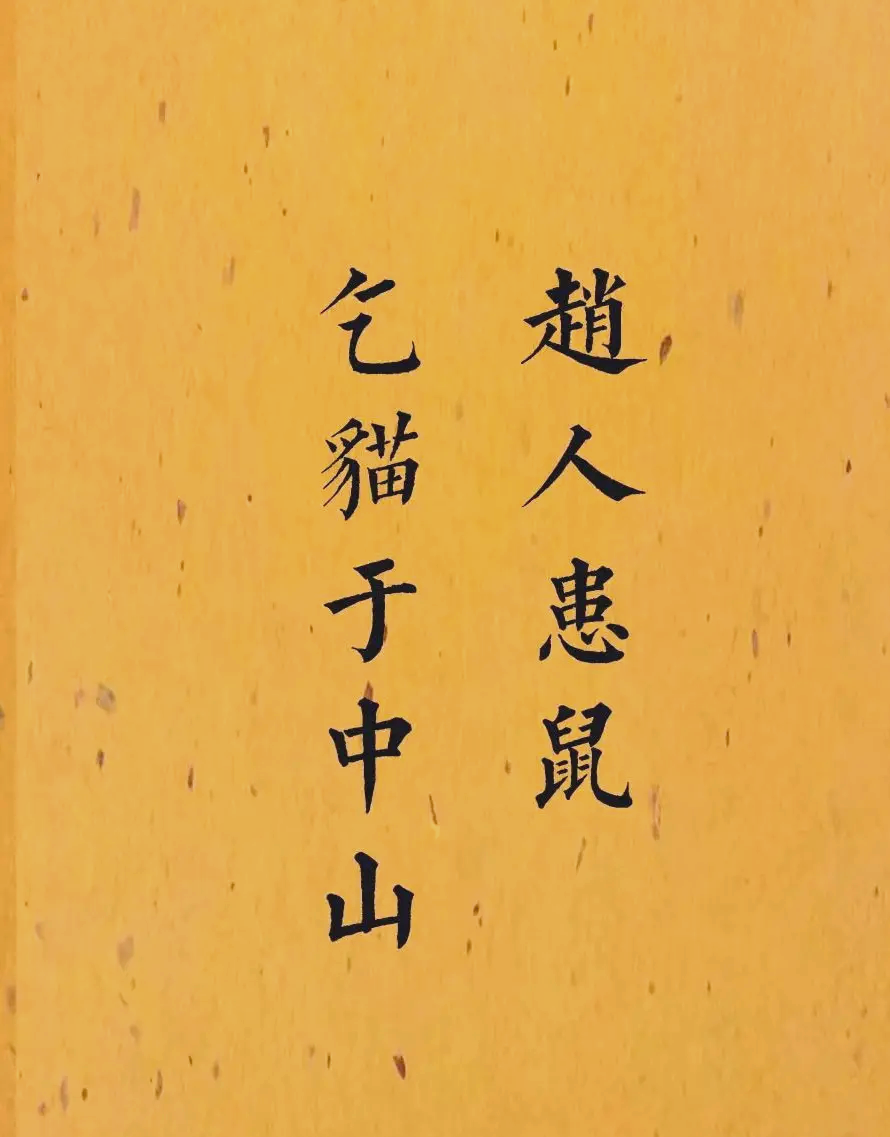 趙人患鼠
乞貓于中山